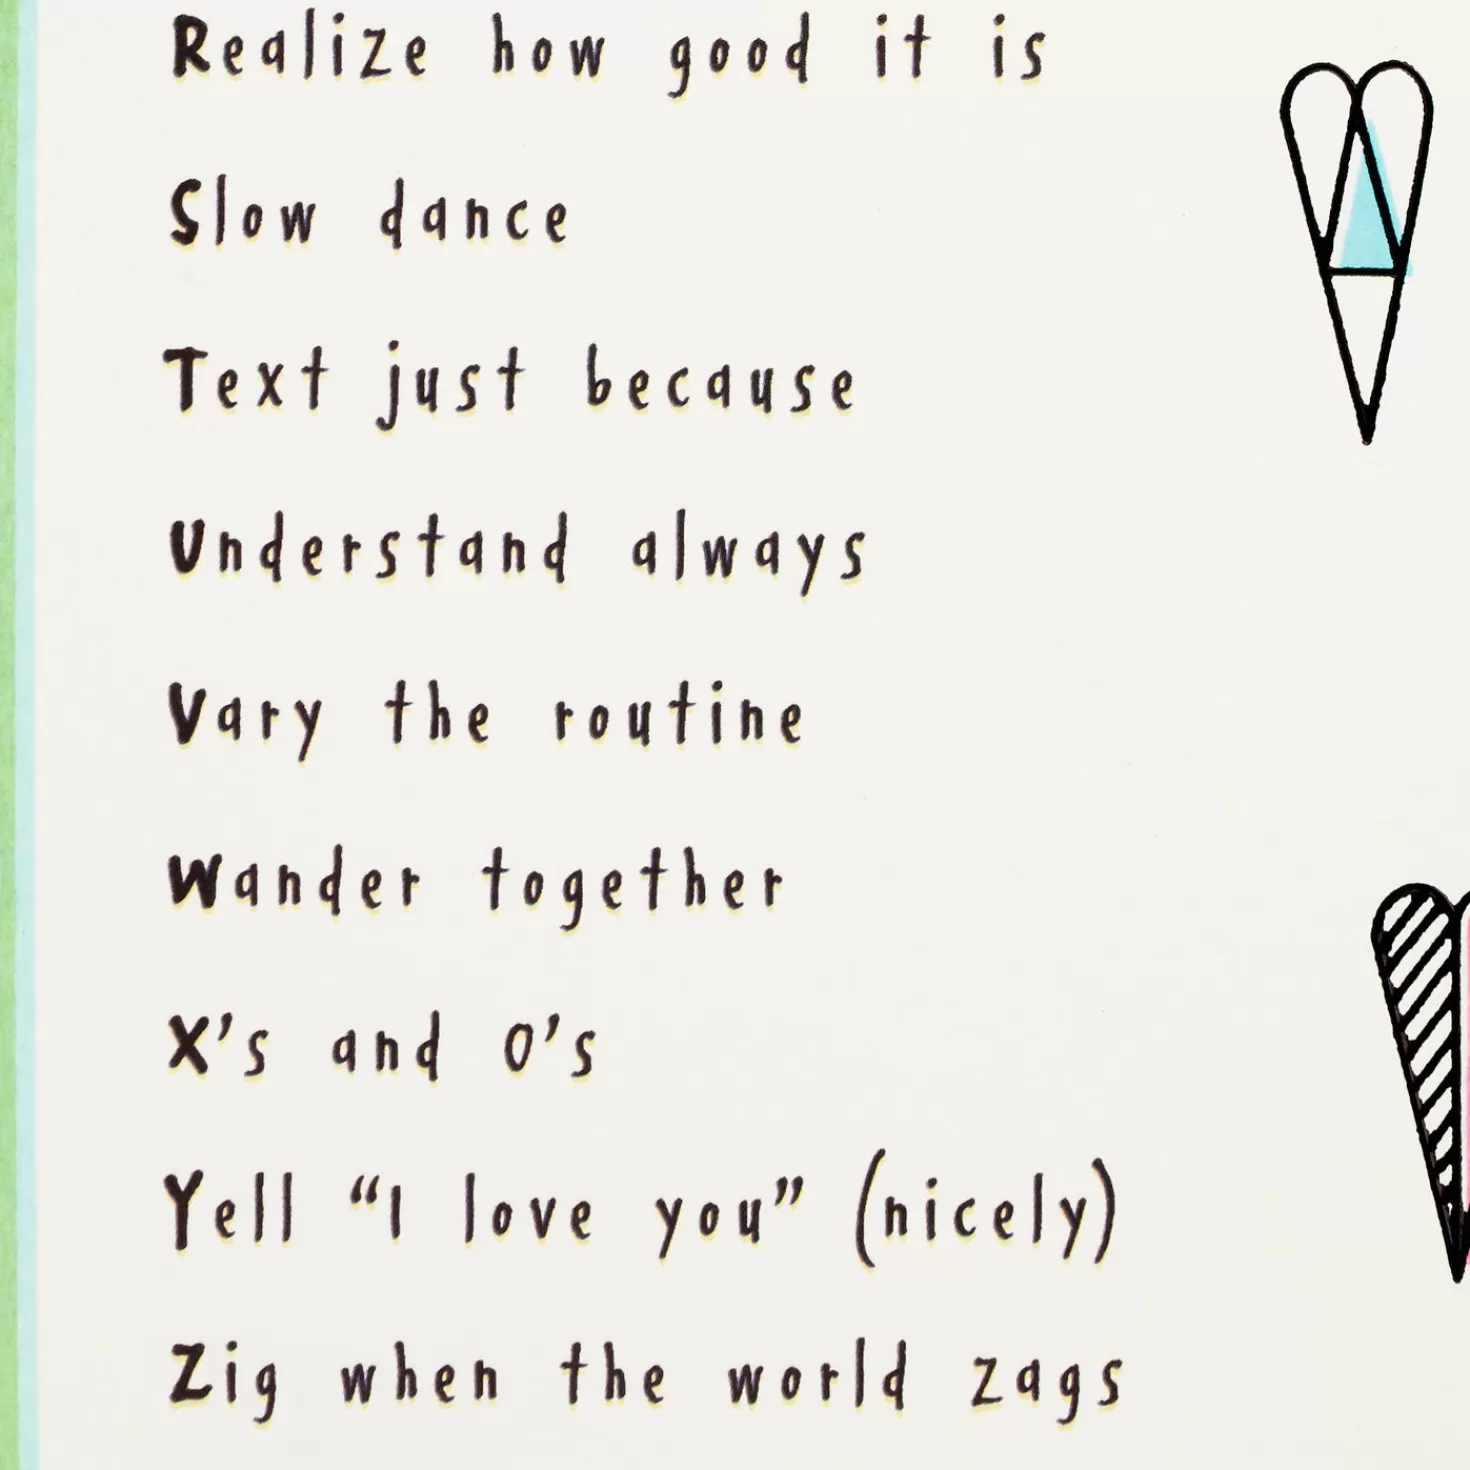 Realize how good it is
Slow dance
Text just because
Understand always
Vary the routine
Wander together
X’s and O’s
Yell “I love you” (nicely)
Zig when the world zags